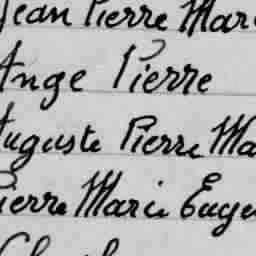 Jean Pierre Mar
Ange Pierre
Auguste Pierre Ma
Pierre Marie Euge